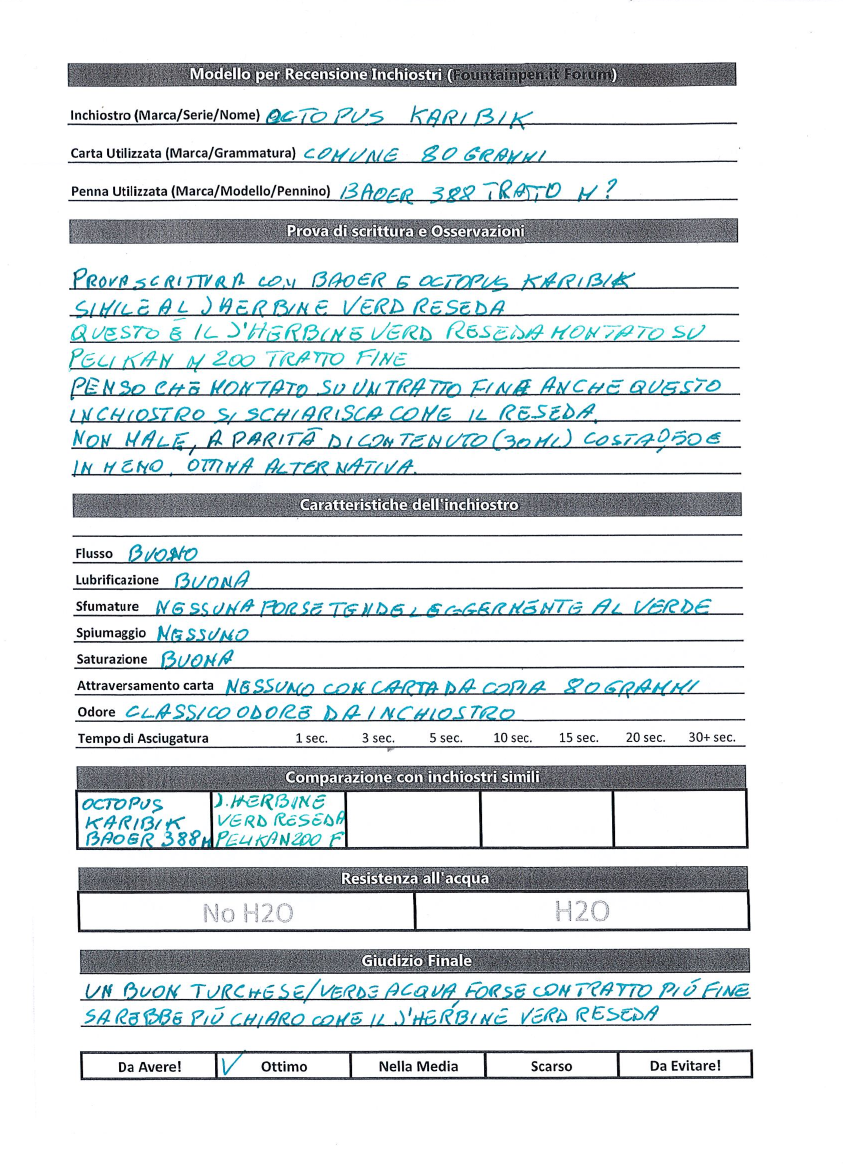 Modello per Recensione Inchiostri (Fountainpen.it Forum)
Inchiostro (Marca/Serie/Nome) OCTOPUS KARIBIK
Carta Utilizzata (Marca/Grammatura) COMUNE 80 GRAMMI
Penna Utilizzata (Marca/Modello/Pennino) BAOER 388 TRATTO M?
Prova di scrittura e Osservazioni
PROVA SCRITTURA CON BAOER E OCTOPUS KARIBIK
SIMILE AL J HERBINE VERD RESEDA
QUESTO È IL J'HERBINE VERD RESEDA MONTATO SU
PELIKAN M 200 TRATTO FINE
PENSO CHE MONTATO SU UN TRATTO FINE ANCHE QUESTO
INCHIOSTRO SI SCHIARISCA COME IL RESEDA.
NON MALE, A PARITÀ DI CONTENUTO (30 ML) COSTA 0,50 €
IN MENO. OTTIMA ALTERNATIVA.
Caratteristiche dell'inchiostro
Flusso BUONO
Lubrificazione BUONA
Sfumature NESSUNA FORSE TENDE LEGGERMENTE AL VERDE
Spiumaggio NESSUNO
Saturazione BUONA
Attraversamento carta NESSUNO CON CARTA DA COPIA 80 GRAMMI
Odore CLASSICO ODORE DA INCHIOSTRO
Tempo di Asciugatura 1 sec. 3 sec. 5 sec. 10 sec. 15 sec. 20 sec. 30+ sec.
Comparazione con inchiostri simili
OCTOPUS
KARIBIK
BAOER 388 M
J. HERBINE
VERD RESEDA
PELIKAN 200 F
Resistenza all'acqua
No H2O H2O
Giudizio Finale
UN BUON TURCHESE/VERDE ACQUA, FORSE CON TRATTO PIÚ FINE
SAREBBE PIÚ CHIARO COME IL J'HERBINE VERD RESEDA
Da Avere! Ottimo Nella Media Scarso Da Evitare!